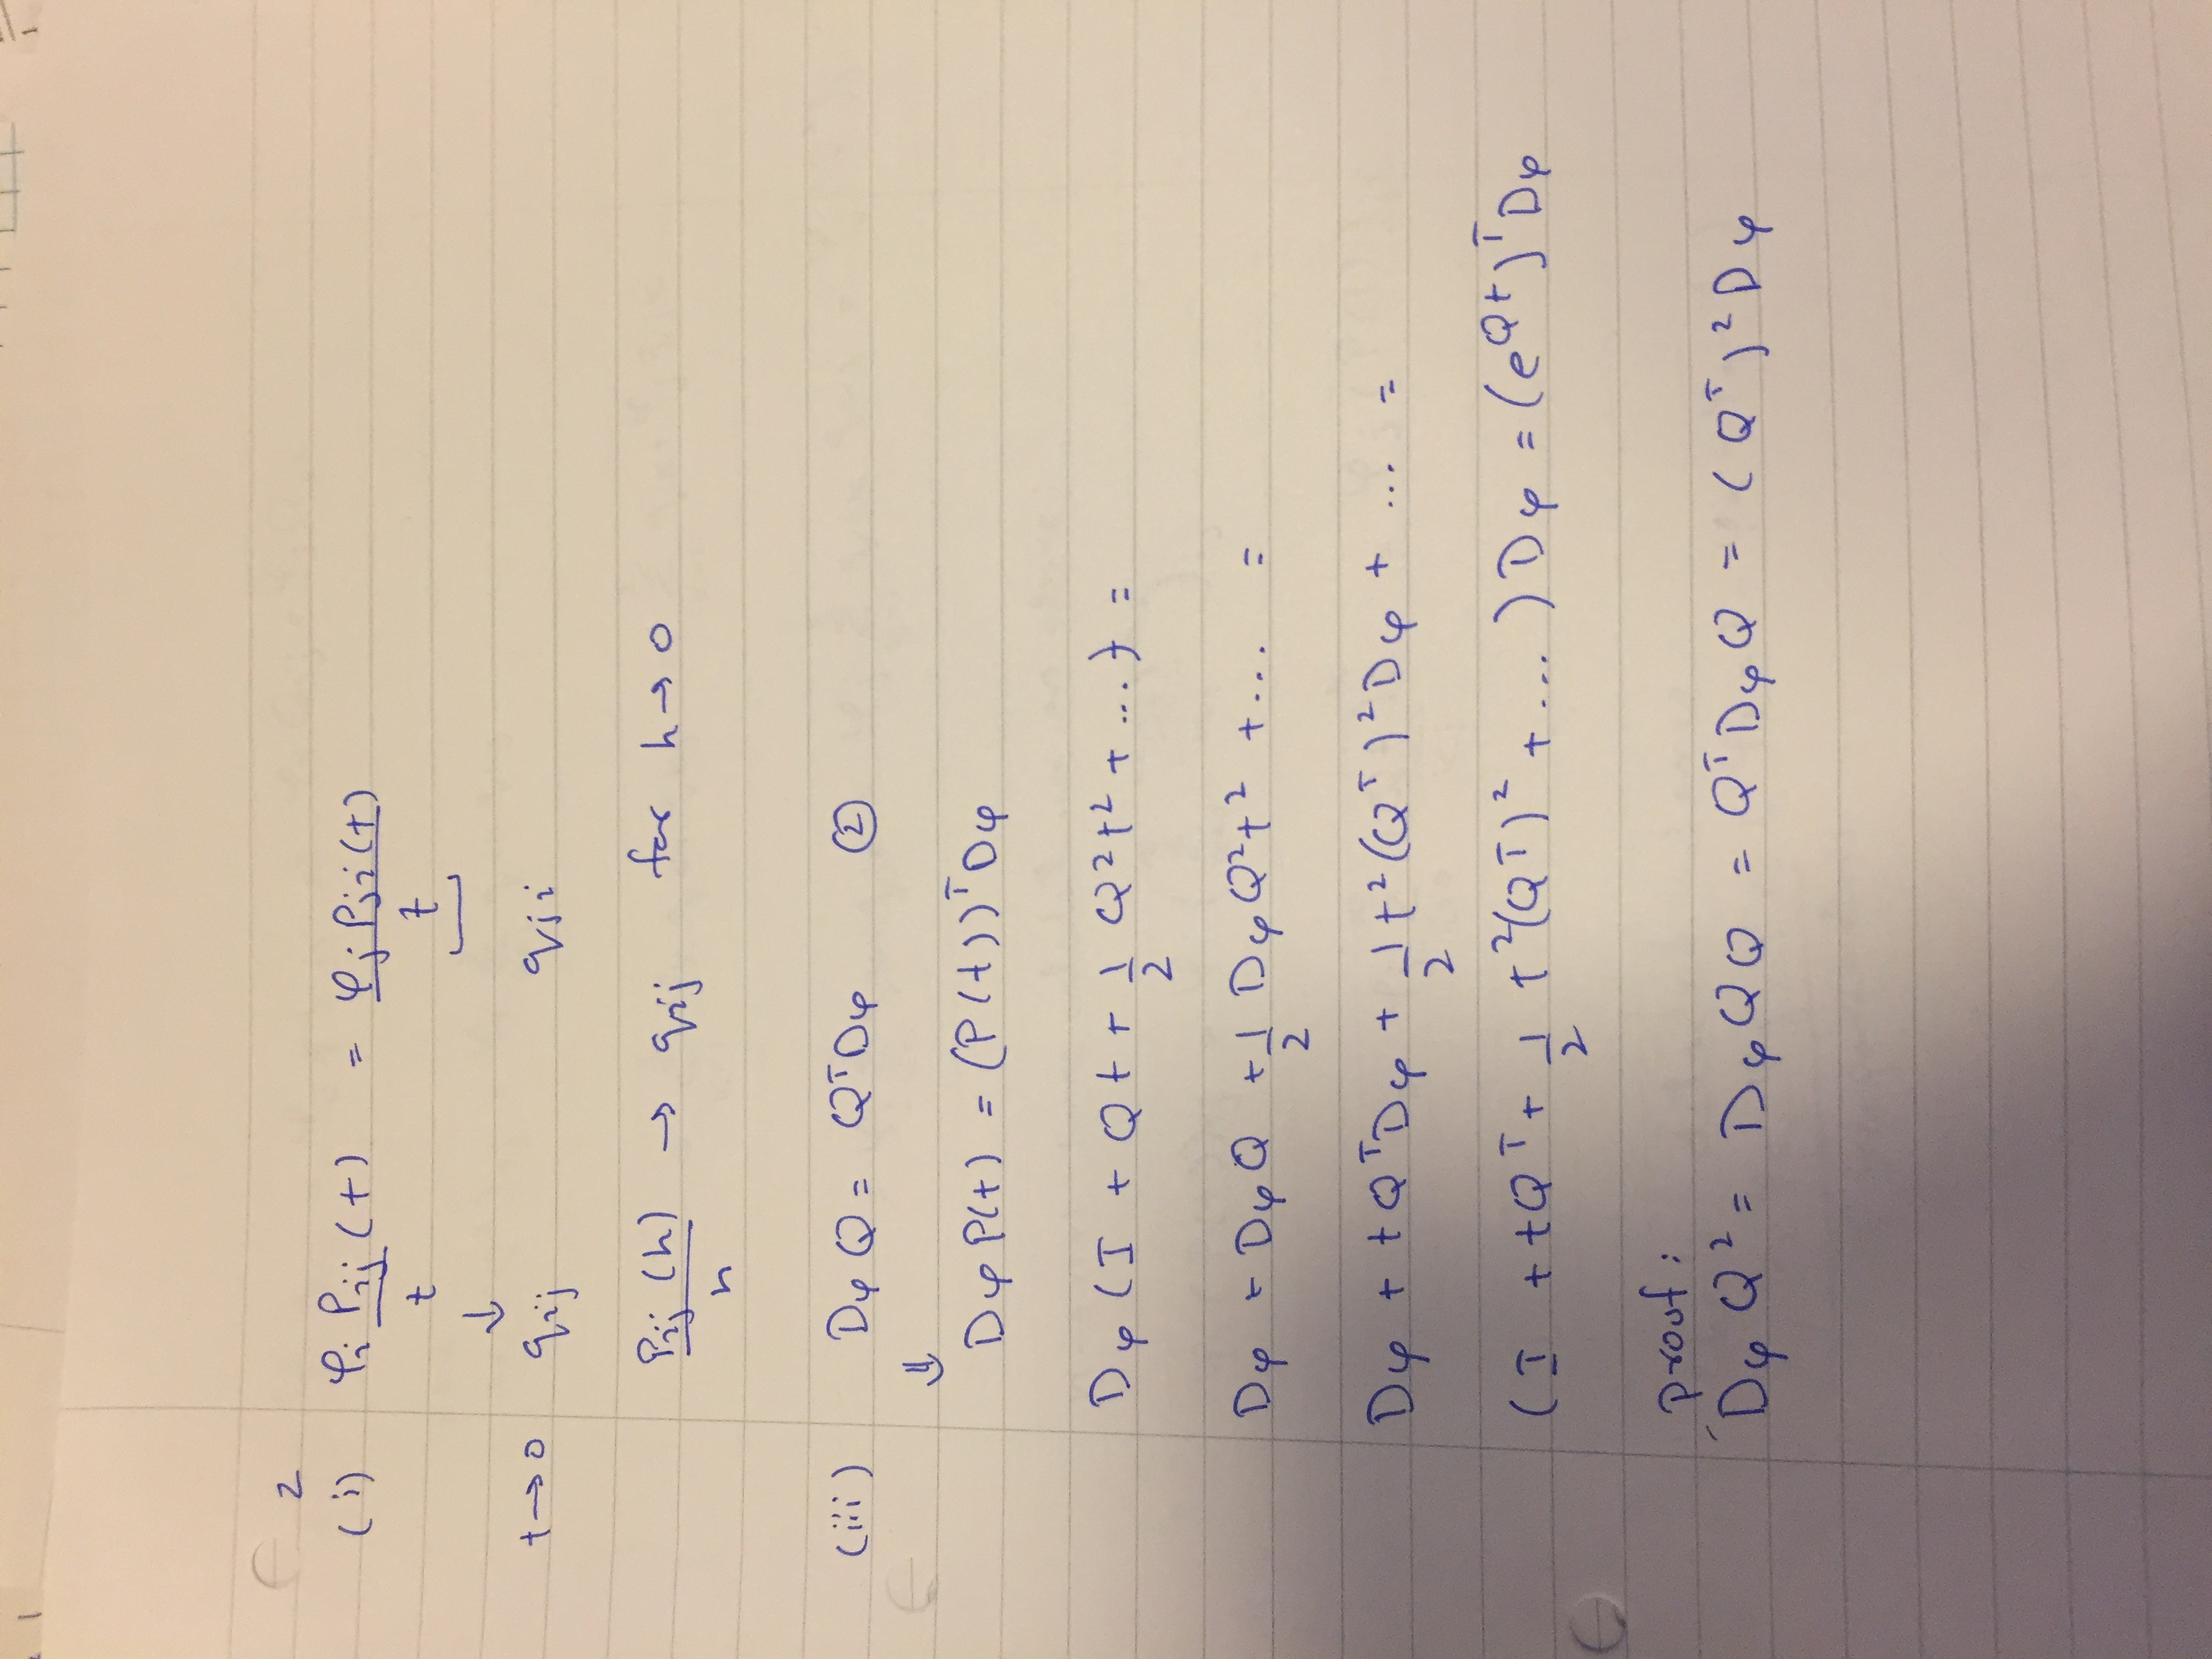 2
(i) φi Pij(t) / t = φj Pji(t) / t
↓
t→0 qij qji
Pij(h) / h → qij for h→0
(iii) Dφ Q = QᵀDφ ②
⇓
Dφ P(t) = (P(t))ᵀ Dφ
Dφ (I + Qt + 1/2 Q²t² + ...) =
Dφ + Dφ Q + 1/2 Dφ Q²t² + ... =
Dφ + tQᵀDφ + 1/2 t²(Qᵀ)²Dφ + ... =
(I + tQᵀ + 1/2 t²(Qᵀ)² + ...) Dφ = (e^{Qt})ᵀ Dφ
proof:
Dφ Q² = Dφ QQ = QᵀDφ Q = (Qᵀ)² Dφ